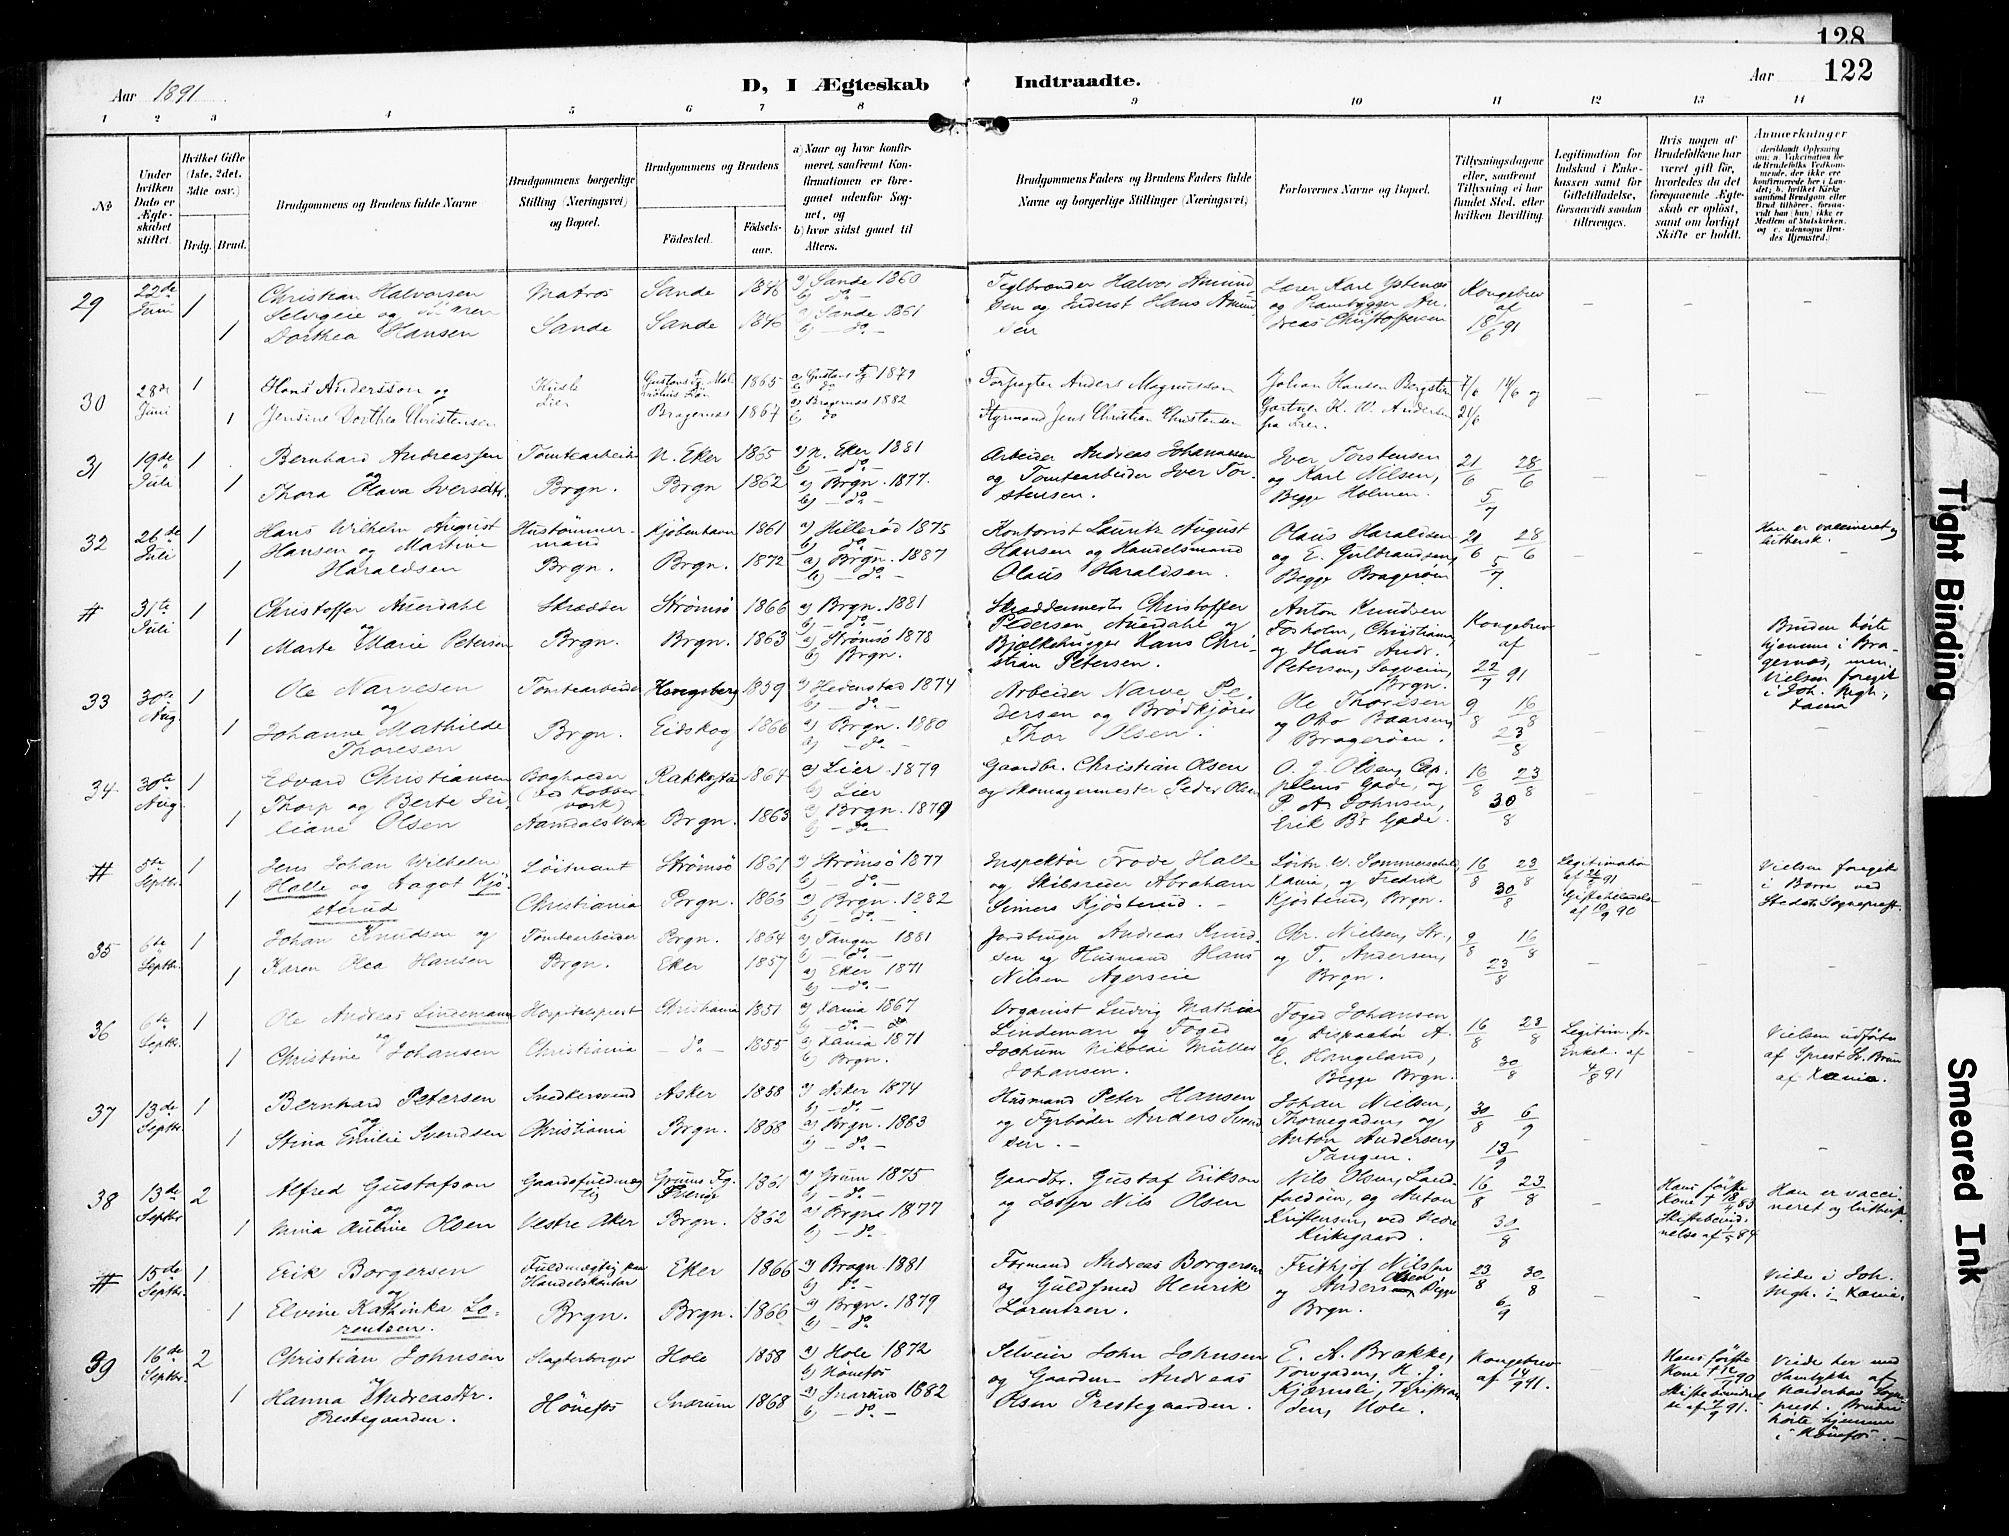 128
122
Aar 1891
D, I Ægteskab Indtraadte.
Aar
1 2 3 4 5 6 7 8 9 10 11 12 13 14
№
Under hvilken Dato er Ægteskabet stiftet.
Hvilket Gifte (1ste, 2det, 3die osv.)
Brdg. Brud.
Brudgommens og Brudens fulde Navne
Brudgommens borgerlige Stilling (Næringsvei) og Bopæl.
Brudgommens og Brudens
Fødested. Fødselsaar.
a) Naar og hvor konfirmeret, saafremt Konfirmationen er foregaaet udenfor Sognet, og
b) hvor sidst gaaet til Alters.
Brudgommens Faders og Brudens Faders fulde Navne og borgerlige Stillinger (Næringsvei)
Forlovernes Navne og Bopæl.
Tillysningsdagene eller, saafremt Tillysning ei har fundet Sted, efter hvilken Bevilling.
Legitimation for Indskud i Enkekassen samt for Giftetilladelse, forsaavidt saadan tiltrænges.
Hvis nogen af Brudefolkene har været gift før, hvorledes da det foregaaende Ægteskab er opløst, samt om lovligt Skifte er holdt.
Anmærkninger
29 22de Juni 1 Christian Halvorsen Matros Sande 1848 a) Sande 1860 b) do
Selvgeie og
1 Dorthea Hansen Sande Sande 1846 a) Sande 1861 b) do
Teglbrænder Halvor Amundsen og Inderst Hans Amundsen
Lærer Karl Ystenes og Prambygger Andreas Christoffersen
Kongebrev af 18/6 91
30 28de Juni 1 Hans Andersson og 1865 1879
1 Jensine Dorthea Christensen Lier Bragernes 1864 a) Bragernes 1882 b) do
Forpagter Anders Magnusson
Styrmand Jens Christian Christensen
Johan Hansen
Gartner K. W. Andersen fra Lier.
7/6 14/6 og 21/6
31 19de Juli 1 Bernhard Andreassen Tomtearbeider N. Eker 1865 a) N. Eker 1881 b) do
og
1 Thora Olava Iversdtr. Brgn. Brgn 1862 a) Brgn. 1877. b) do
Arbeider Andreas Johannesen og Tomtearbeider Iver Torstensen.
Iver Torstensen og Karl Nilsen, Begge Holmen.
21/6 28/6 5/7
32 26de Juli 1 Hans Wilhelm August Hustømmermand Kjøbenhavn 1861 a) Hillerød 1875 b) do
Hansen og Martine
1 Haraldsen Brgn. Brgn. 1872 a) Brgn. 1887 b) do
Kontorist Lauritz August Hansen og Handelsmand Olaus Haraldsen.
Olaus Haraldsen og E. Gulbrandsen, Begge Bragerøen
21/6 28/6 5/7.
Han er vaccineret og luthersk.
# 31te Juli 1 Christoffer Auerdahl Skrædder Strømsø 1866 a) Brgn. 1881 b) do
og
1 Marte Marie Petersen Brgn. Brgn. 1863 a) Strømsø 1878 b) Brgn.
Skræddermester Christoffer Pedersen Auerdahl og Bjælkehugger Hans Christian Petersen.
Anton Knudsen Fosholm, Christiania og Hans Andr. Petersen, Sagveien, Brgn.
Kongebrev af 22/7 91
Bruden hørte hjemme i Bragernes, men Vielsen foregik i Joh. Mgh., Xania
33 30te Aug. 1 Ole Narvesen Tomtearbeider Kongsberg 1859 a) Hedenstad 1874 b) do
og
1 Johanne Mathilde Thoresen Brgn. Eidskog 1866 a) Brgn. 1880 b) do
Arbeider Narve Pedersen og Brødkjører Thor Olsen.
Ole Thoresen og Otto Baarsen, Bragerøen.
9/8 16/8 23/8
34 30te Aug. 1 Edvard Christiansen Bogholder Rakkestad 1864 a) Lier 1879 b) Lier
Thorp og Berte Juliane Olsen
1 Aamdals Værk Brgn. 1863 a) Brgn. 1879 b) do
Gaardbr. Christian Olsen og Skomagermester Peder Olsen
O. J. Olsen, Cappelens Gade, og P. A. Johnsen, Erik Bs Gade.
16/8 23/8 30/8
# 5te Septbr. 1 Jens Johan Wilhelm Løitnant Strømsø 1861 a) Strømsø 1877 b) do
Halle og Dagot Kjøsterud
1 Christiania Brgn. 1866 a) Brgn. 1882 b) do
Inspektør Frode Halle og Skibsreder Abraham Simers Kjøsterud.
Løitn. W. Sommerschild, Xania, og Fredrik Kjøsterud, Brgn.
16/8 23/8 30/8
Vielsen foregik i Borre ved Stedets Sognepræst.
35 6te Septbr. 1 Johan Knudsen og Tomtearbeider Brgn. 1864 a) Tangen 1881 b) do
1 Karen Olea Hansen Brgn. Eker 1857 a) Eker 1871 b) do
Jordbruger Andreas Knudsen og Husmand Hans Nilsen Ageseie
Chr. Nielsen, Str., og T. Andersen, Brgn.
9/8 16/8 23/8
36 6te Septbr. 1 Ole Andreas Lindemann Hospitalsprest Christiania 1851 a) Xania 1867 b) do
og
1 Christine Johansen Christiania do 1855 a) Xania 1871 b) Brgn.
Organist Ludvig Mathias Lindeman og Foged Jochum Nikolai Müller Johansen.
Foged Johansen og Dispachør A. E. Haugeland, Begge Brgn.
16/8 23/8 30/8
Legitim. fr. Enkek. af 4/8 91
Vielsen udførtes af Sprest Chr. Brun af Xania.
37 13de Septbr. 1 Bernhard Petersen Snedkersvend Asker 1858 a) Asker 1874 b) do
og
1 Stina Emilie Svendsen Christiania Brgn. 1868 a) Brgn. 1883 b) do
Husmand Peter Hansen og Fyrbøder Anders Svendsen.
Johan Nielsen, Thornegaden, og Anton Andersen, Tangen.
30/8 6/9 13/9
38 13de Septbr 2 Alfred Gustafson Gaardsfuldmægtig Grums Sg. Sverige 1861 a) Grum 1875 b) do
og
1 Mina Aubine Olsen Vestre Aker Brgn. 1862 a) Brgns 1877 b) do
Gaardbr. Gustaf Erikson og Lods Nils Olsen
Nils Olsen, Landfaldøen, og Anton Kristensen, ved Nedre Kirkegaard.
16/8 23/8 30/8
Hans første Kone † 18/4 83 Skiftebevidnelse af 1/5 84
Han er vaccineret og luthersk.
# 15de Septbr. 1 Erik Borgersen Fuldmægtig paa Handelskontor Eker 1866 a) Bragn. 1881 b) do
og
1 Elvine Kathinka Lorentzen. Brgn. Brgn. 1866 a) Brgn. 1879 b) do
Formand Andreas Borgersen og Guldsmed Henrik Lorentzen.
Frithjof Nilsen og Anders Olsen, Begge Brgn.
23/8 30/8 6/9
Viede i Joh. Mgh. i Xania.
39 16de Septbr. 2 Christian Johnsen Slagterborger Hole 1858 a) Hole 1872 b) Hønefos
1 Hanna Andreasdtr. Prestegaarden. Hønefos Snarum 1868 a) Snarum 1882 b) do
Selveier John Johnsen og Gaardm. Andreas Olsen Prestegaarden.
E. A. Brakke, Torvgaden, H. J. Kjærnsli, Hole.
Kongebrev af 14/9 91.
Hans første Kone † 90 Skiftebevidnelse af 7/9 91.
Viede her med Samtykke af Norderhovs Sognepræst. Bruden hørte hjemme i Hønefos.
Tight Binding
Smeared Ink